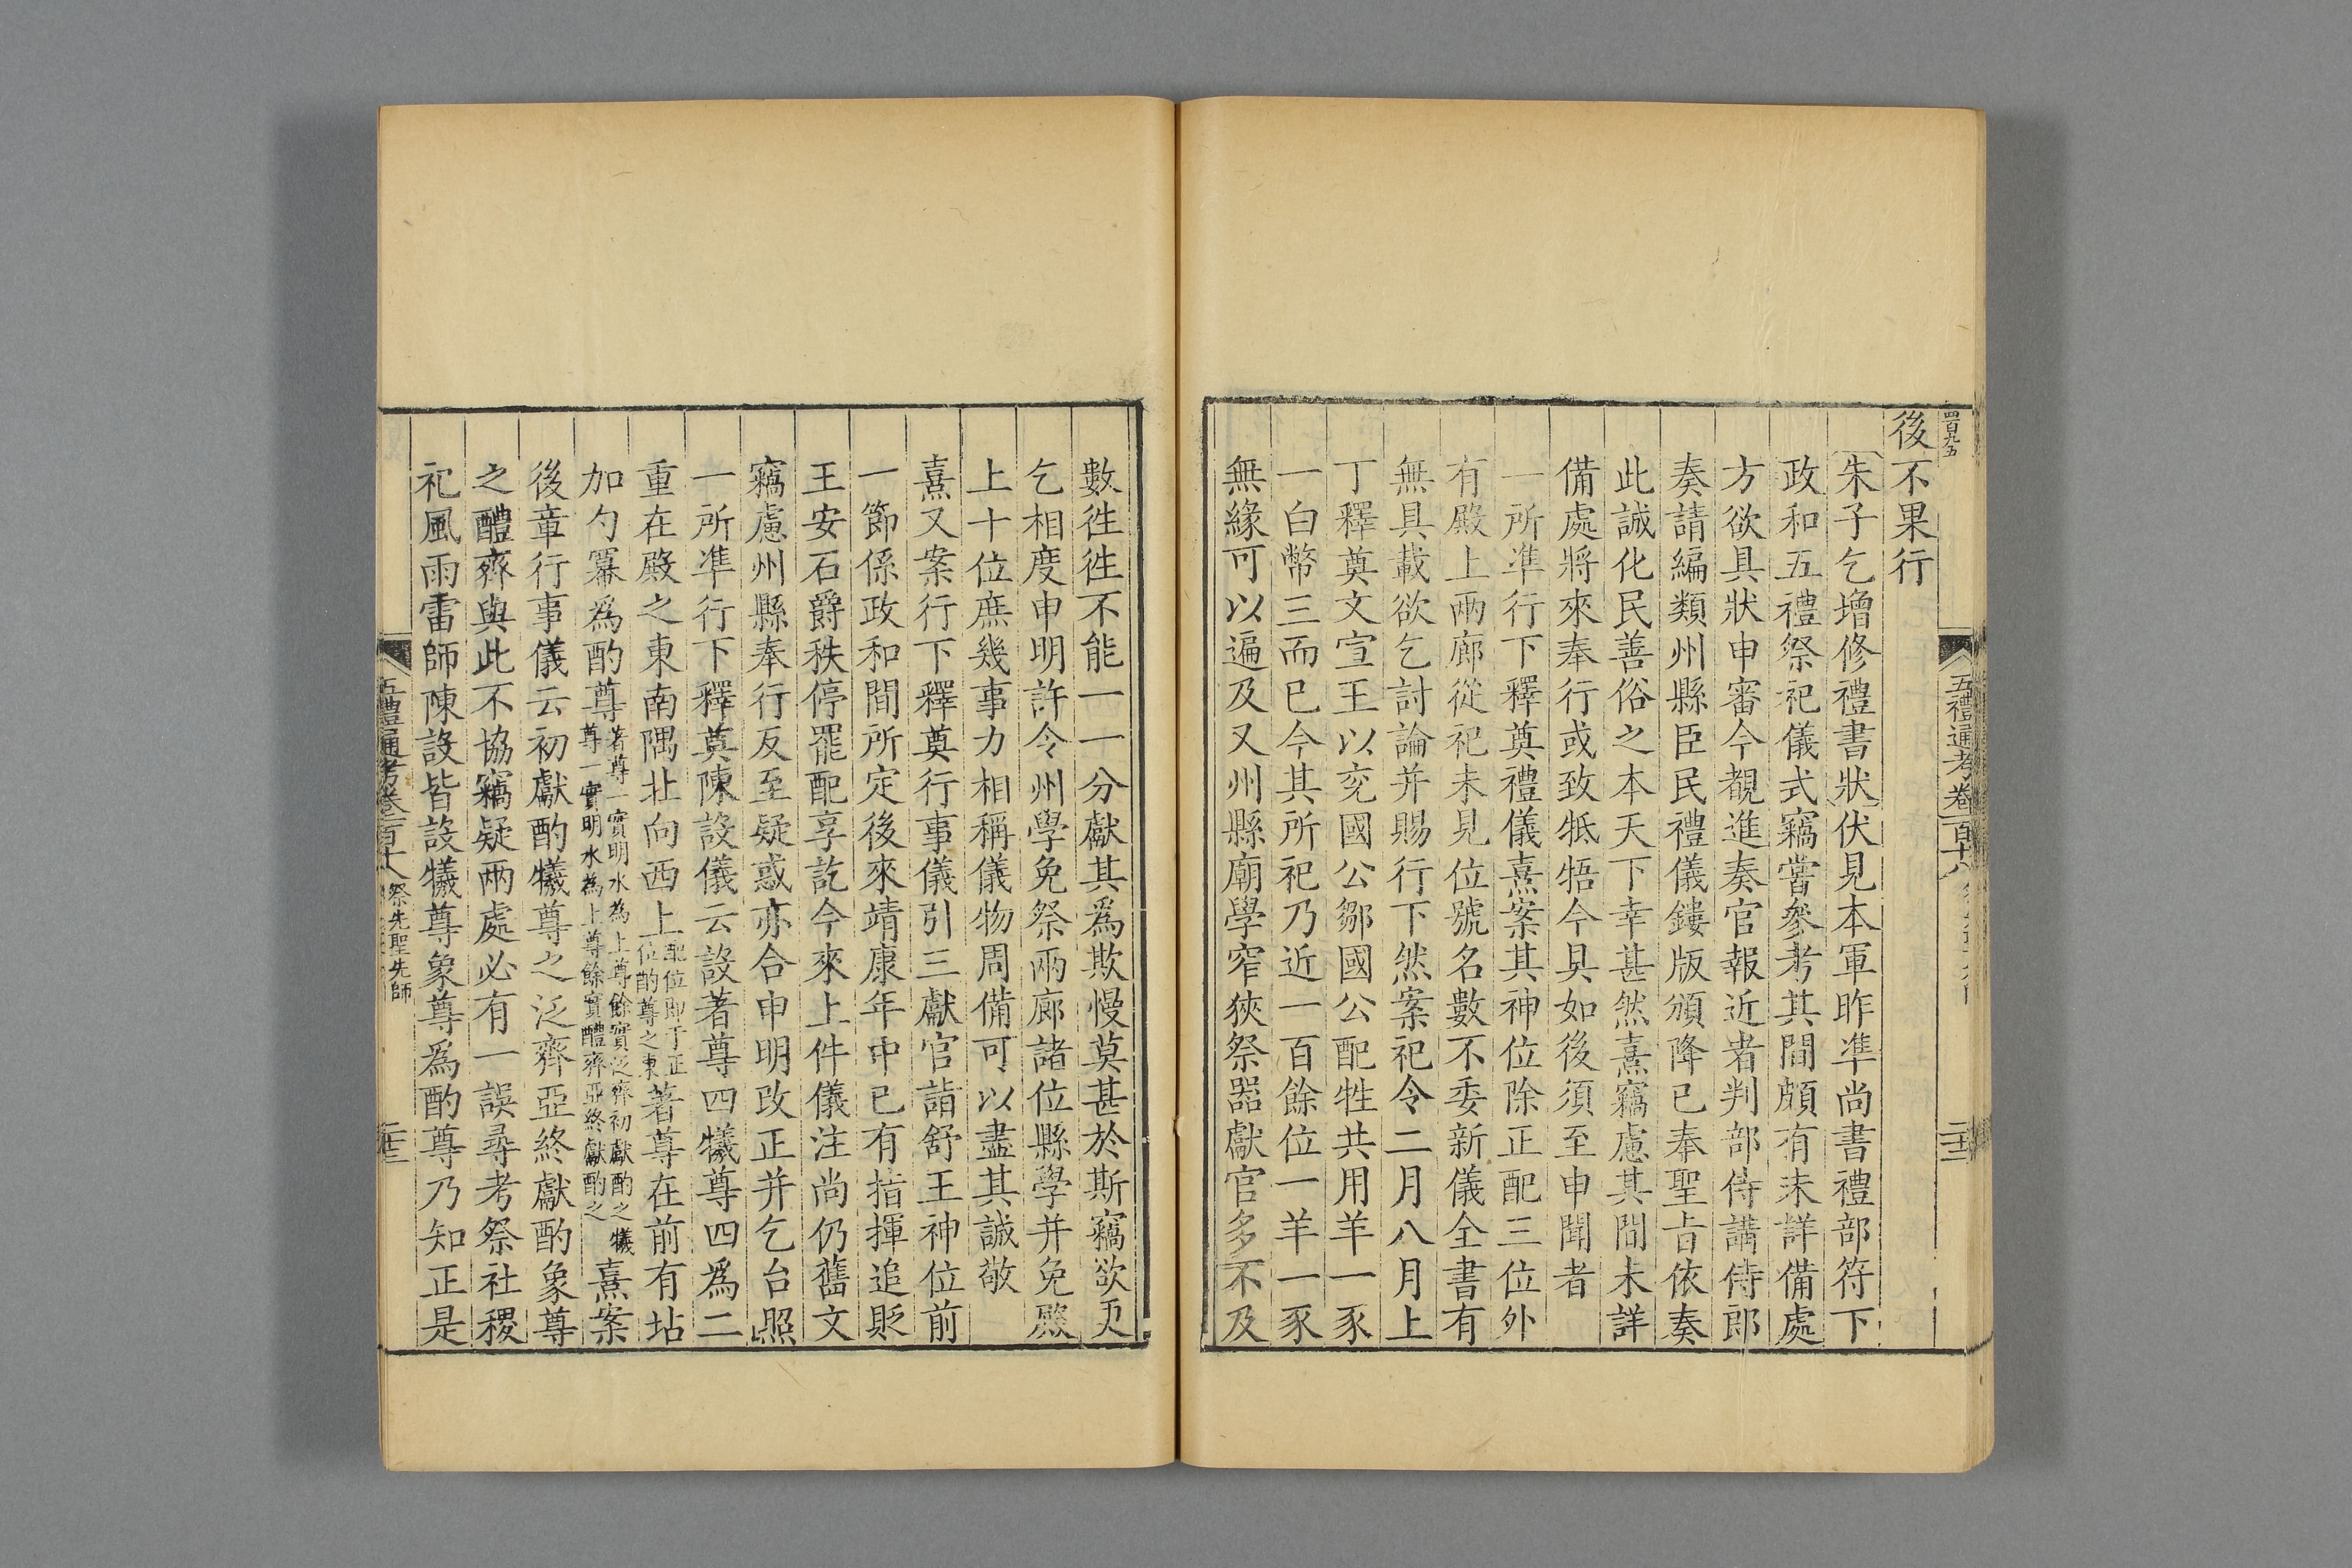 四百九五
五禮通考卷一百十八
二十二
後不果行
朱子乞增修禮書狀伏見本軍昨準尚書禮部符下
政和五禮祭祀儀式竊嘗參考其間頗有未詳備處
方欲具狀申審今覩進奏官報近者判部侍講侍郎
奏請編類州縣臣民禮儀鏤版頒降已奉聖旨依奏
此誠化民善俗之本天下幸甚然熹竊慮其間未詳
備處將來奉行或致牴牾今具如後須至申聞者
一所準行下釋奠禮儀熹案其神位除正配三位外
有殿上兩廊從祀未見位號名數不委新儀全書有
無具載欲乞討論并賜行下然案祀令二月八月上
丁釋奠文宣王以兗國公鄒國公配牲共用羊一豕
一白幣三而已今其所祀乃近一百餘位一羊一豕
無緣可以遍及又州縣廟學窄狹祭器獻官多不及
數徃徃不能一一分獻其爲欺慢莫甚於斯竊欲更
乞相度申明許令州學免祭兩廊諸位縣學并免殿
上十位庶幾事力相稱儀物周備可以盡其誠敬
熹又案行下釋奠行事儀引三獻官詣舒王神位前
一節係政和間所定後來靖康年中已有指揮追貶
王安石爵秩停罷配享訖今來上件儀注尚仍舊文
竊慮州縣奉行反至疑惑亦合申明改正并乞台照
一所準行下釋奠陳設儀云設著尊四犧尊四爲二
重在殿之東南隅北向西上配位即于正位酌尊之東著尊在前有坫
加勺冪爲酌尊著尊一實明水為上尊餘實泛齊初獻酌之犧尊一實明水為上尊餘實醴齊亞終獻酌之熹案
後章行事儀云初獻酌犧尊之泛齊亞終獻酌象尊
之醴齊與此不協竊疑兩處必有一誤尋考祭社稷
祀風雨雷師陳設皆設犧尊象尊爲酌尊乃知正是
五禮通考卷一百十八 祭先聖先師
二十二